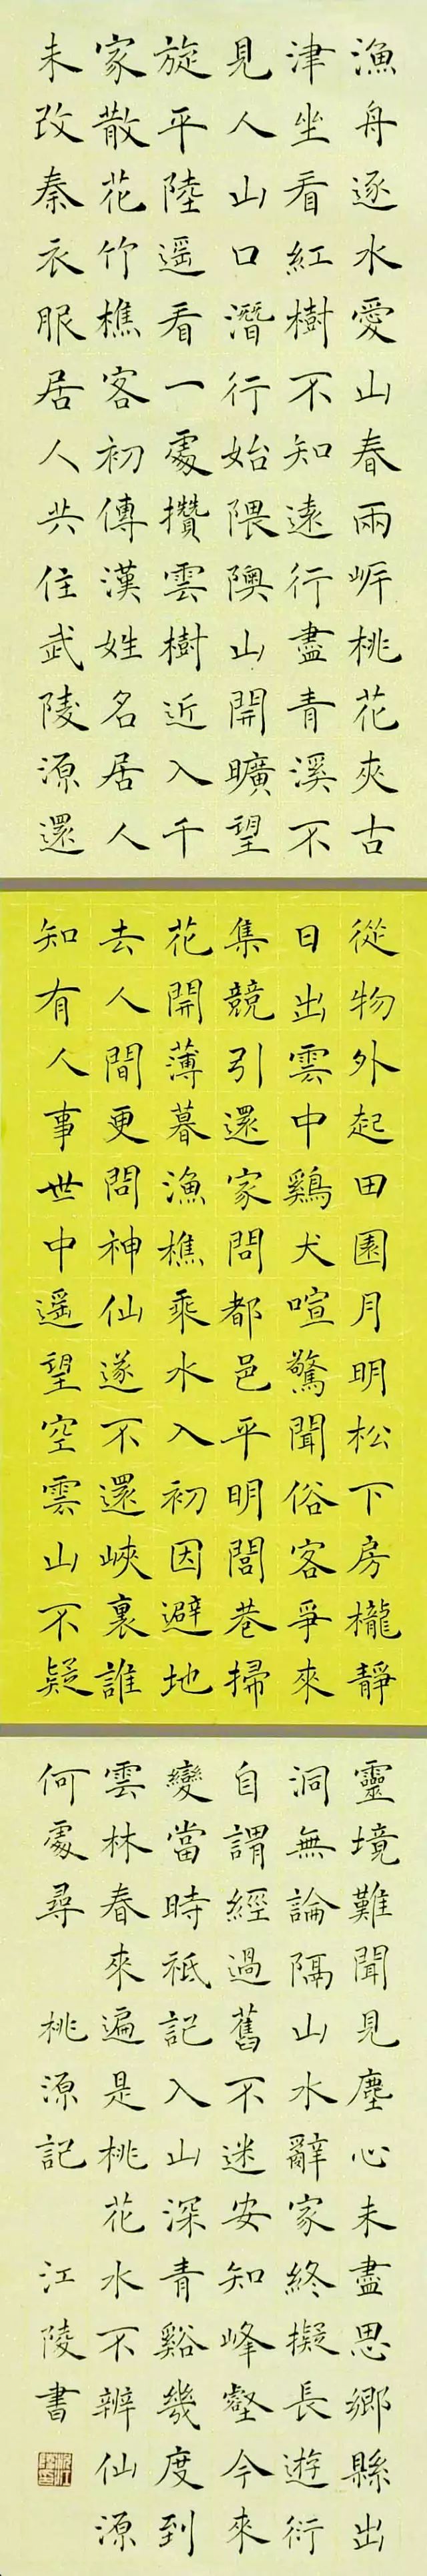 漁舟逐水愛山春兩岍桃花夾古
津坐看紅樹不知遠行盡青溪不
見人山口潛行始隈隩山開曠望
旋平陸遥看一處攢雲樹近入千
家散花竹樵客初傳漢姓名居人
未改秦衣服居人共住武陵源還
從物外起田園月明松下房櫳靜
日出雲中鷄犬喧驚聞俗客爭來
集競引還家問都邑平明閭巷掃
花開薄暮漁樵乘水入初因避地
去人間更問神仙遂不還峽裏誰
知有人事世中遥望空雲山不疑
靈境難聞見塵心未盡思鄉縣出
洞無論隔山水辭家終擬長遊衍
自謂經過舊不迷安知峰壑今來
變當時祗記入山深青谿幾度到
雲林春來遍是桃花水不辨仙源
何處尋 桃源記 江陵書